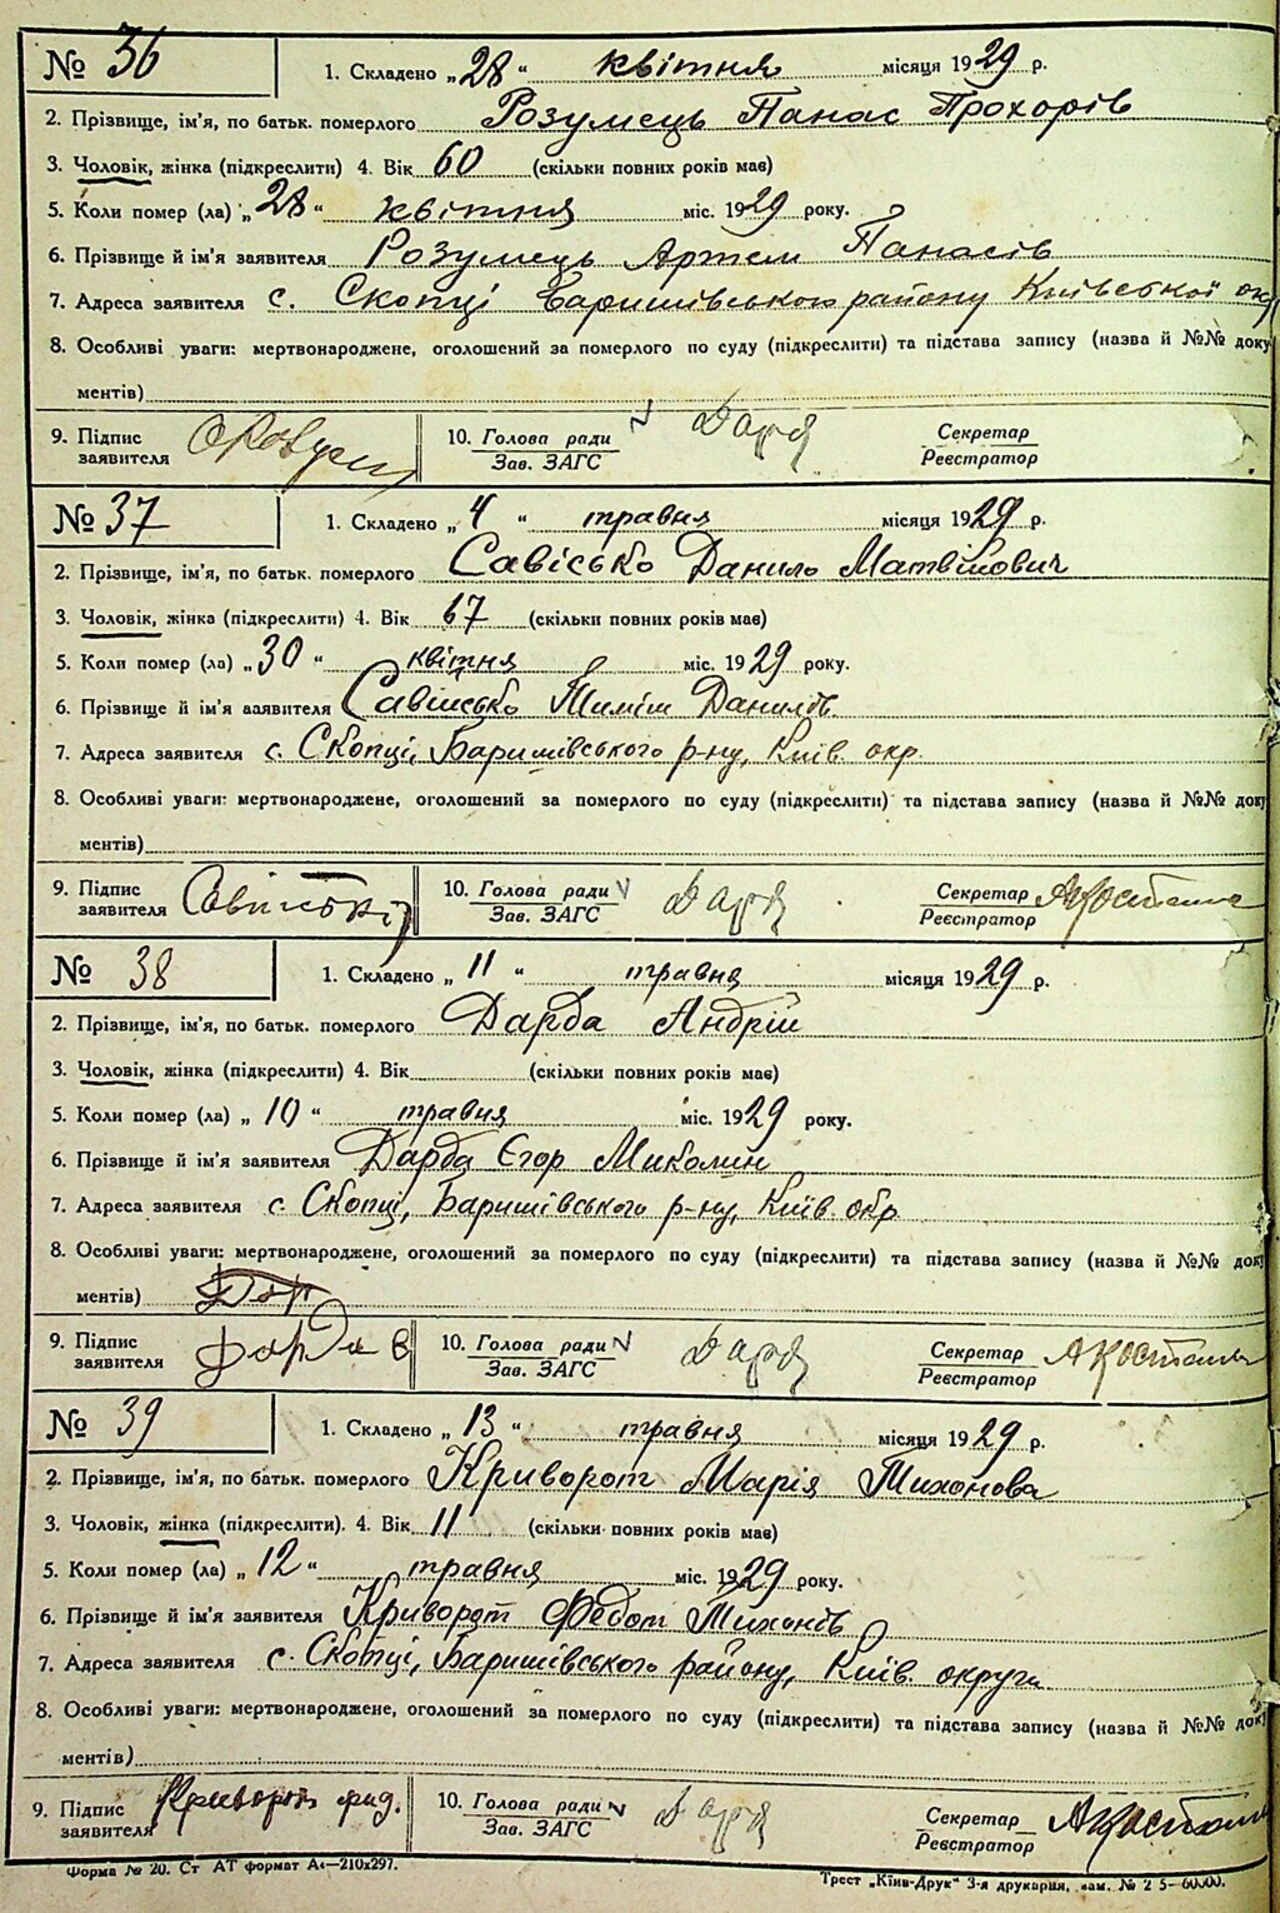 № 36
1. Складено „28“ квітня місяця 1929 р.
2. Прізвище, ім'я, по батьк. померлого Розумець Панас Прохорів
3. Чоловік, жінка (підкреслити) 4. Вік 60 (скільки повних років має)
5. Коли помер (ла) „28“ квітня міс. 1929 року.
6. Прізвище й ім'я заявителя Розумець Артем Панасів
7. Адреса заявителя с. Скопці Баришівського району Київської ок
8. Особливі уваги: мертвонароджене, оголошений за померлого по суду (підкреслити) та підстава запису (назва й №№ доку
ментів)
9. Підпис заявителя
10. Голова ради Зав. ЗАГС
Секретар Реєстратор
№ 37
1. Складено „4“ травня місяця 1929 р.
2. Прізвище, ім'я, по батьк. померлого Савісько Данило Матвійович
3. Чоловік, жінка (підкреслити) 4. Вік 67 (скільки повних років має)
5. Коли помер (ла) „30“ квітня міс. 1929 року.
6. Прізвище й ім'я заявителя Савійсько Тиміш Данилів.
7. Адреса заявителя с. Скопці, Баришівського р-ну, Київ. окр.
8. Особливі уваги: мертвонароджене, оголошений за померлого по суду (підкреслити) та підстава запису (назва й №№ доку
ментів)
9. Підпис заявителя
10. Голова ради Зав. ЗАГС
Секретар Реєстратор
№ 38
1. Складено „11“ травня місяця 1929 р.
2. Прізвище, ім'я, по батьк. померлого Дарда Андрій
3. Чоловік, жінка (підкреслити) 4. Вік (скільки повних років має)
5. Коли помер (ла) „10“ травня міс. 1929 року.
6. Прізвище й ім'я заявителя Дарда Єгор Миколин
7. Адреса заявителя с. Скопці, Баришівського р-ну, Київ. окр
8. Особливі уваги: мертвонароджене, оголошений за померлого по суду (підкреслити) та підстава запису (назва й №№ доку
ментів)
9. Підпис заявителя Дарда Є
10. Голова ради Зав. ЗАГС
Секретар Реєстратор
№ 39
1. Складено „13“ травня місяця 1929 р.
2. Прізвище, ім'я, по батьк. померлого Криворот Марія Тихонова
3. Чоловік, жінка (підкреслити). 4. Вік 11 (скільки повних років має)
5. Коли помер (ла) „12“ травня міс. 1929 року.
6. Прізвище й ім'я заявителя Криворот Федот Тихонів
7. Адреса заявителя с. Скопці, Баришівського району, Київ. округи
8. Особливі уваги: мертвонароджене, оголошений за померлого по суду (підкреслити) та підстава запису (назва й №№ доку
ментів)
9. Підпис заявителя Криворот
10. Голова ради Зав. ЗАГС
Секретар Реєстратор
Форма № 20. Ст АТ формат А4—210х297.
Трест „Київ-Друк“ 3-я друкарня,